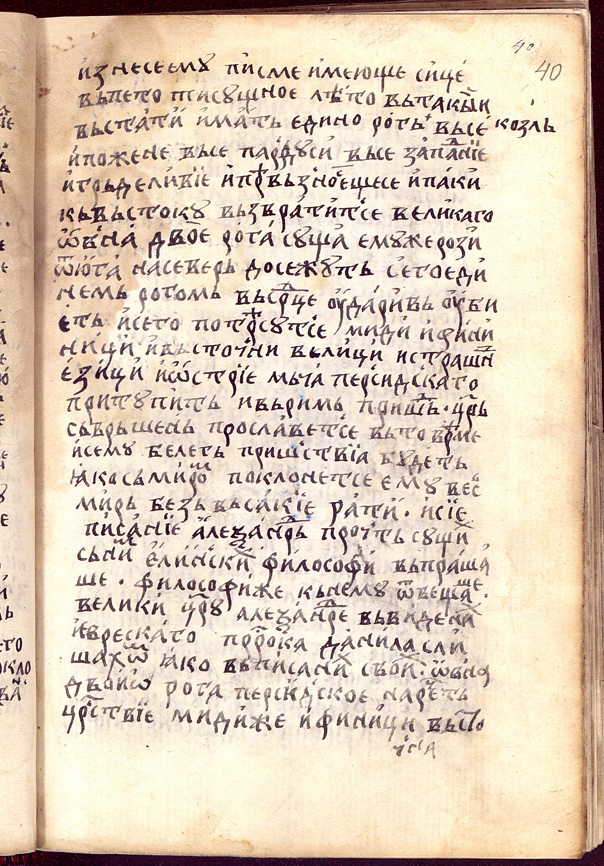 40
40
изнесеему писме имеюще сице
вьпето тисущное лѣто вьтакьїи
вьстати имать едино роть вьсе козль
ипожене вьсе пардуси вьсе западнїе
игрьделивїе ипрѣвьзносещесе ипаки
кьвьстоку вьзвратитсе великаго
ѡвна двое рога суща емужерози
ѿюга насеверь досежуть сегоеди
немь рогомь вьсрⷣце ꙋдаривь ꙋби
еть исего потрѣсутсе миди ифини
ници ивьсточни велици истрашни
езици иѡстрїе мьча персидскаго
притупить ивьримь прїить. црь
сьврьшень прославетсе вьто врѣме
исему белегь пришствїа будеть
ꙗкосьмиромⷨ поклонетсе ему вес
мирь безь вьсакїе рати. исїе
писанїе алеѯанⷣрь прочть сущи
сьним елински философи вьпраша
ше. философиже кьнему ѿвещаше.
велики црꙋ алеѯанⷣре вьвиденїи
еврескаго пророка данила сли
шахѡⷨ ꙗко вьписани свои. ѡвна
двоиѡ рога персидское наречеть
црⷭтвїе мидиже ифиници вьсто
чна